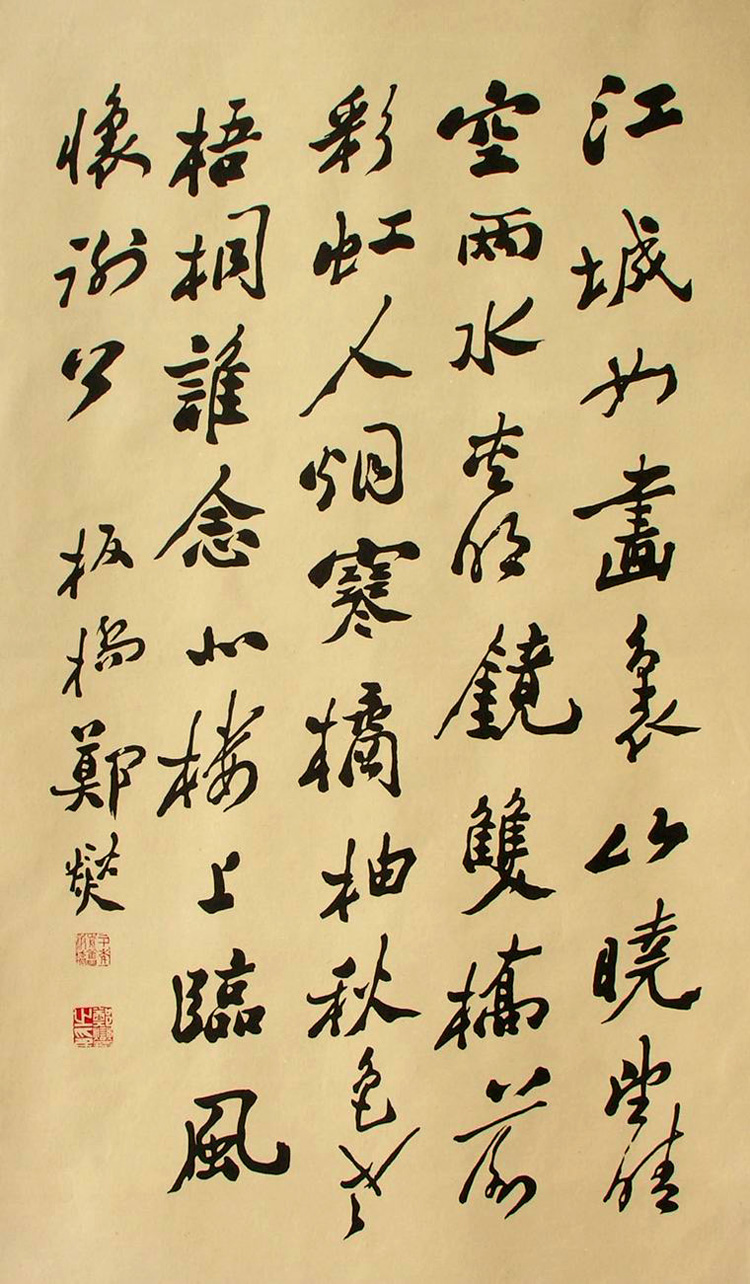 江城如畫裏山曉望晴
空兩水夾明鏡雙橋落
彩虹人烟寒橘柚秋色老
梧桐誰念北楼上臨風
懷謝公 板橋鄭燮
鄭燮之印